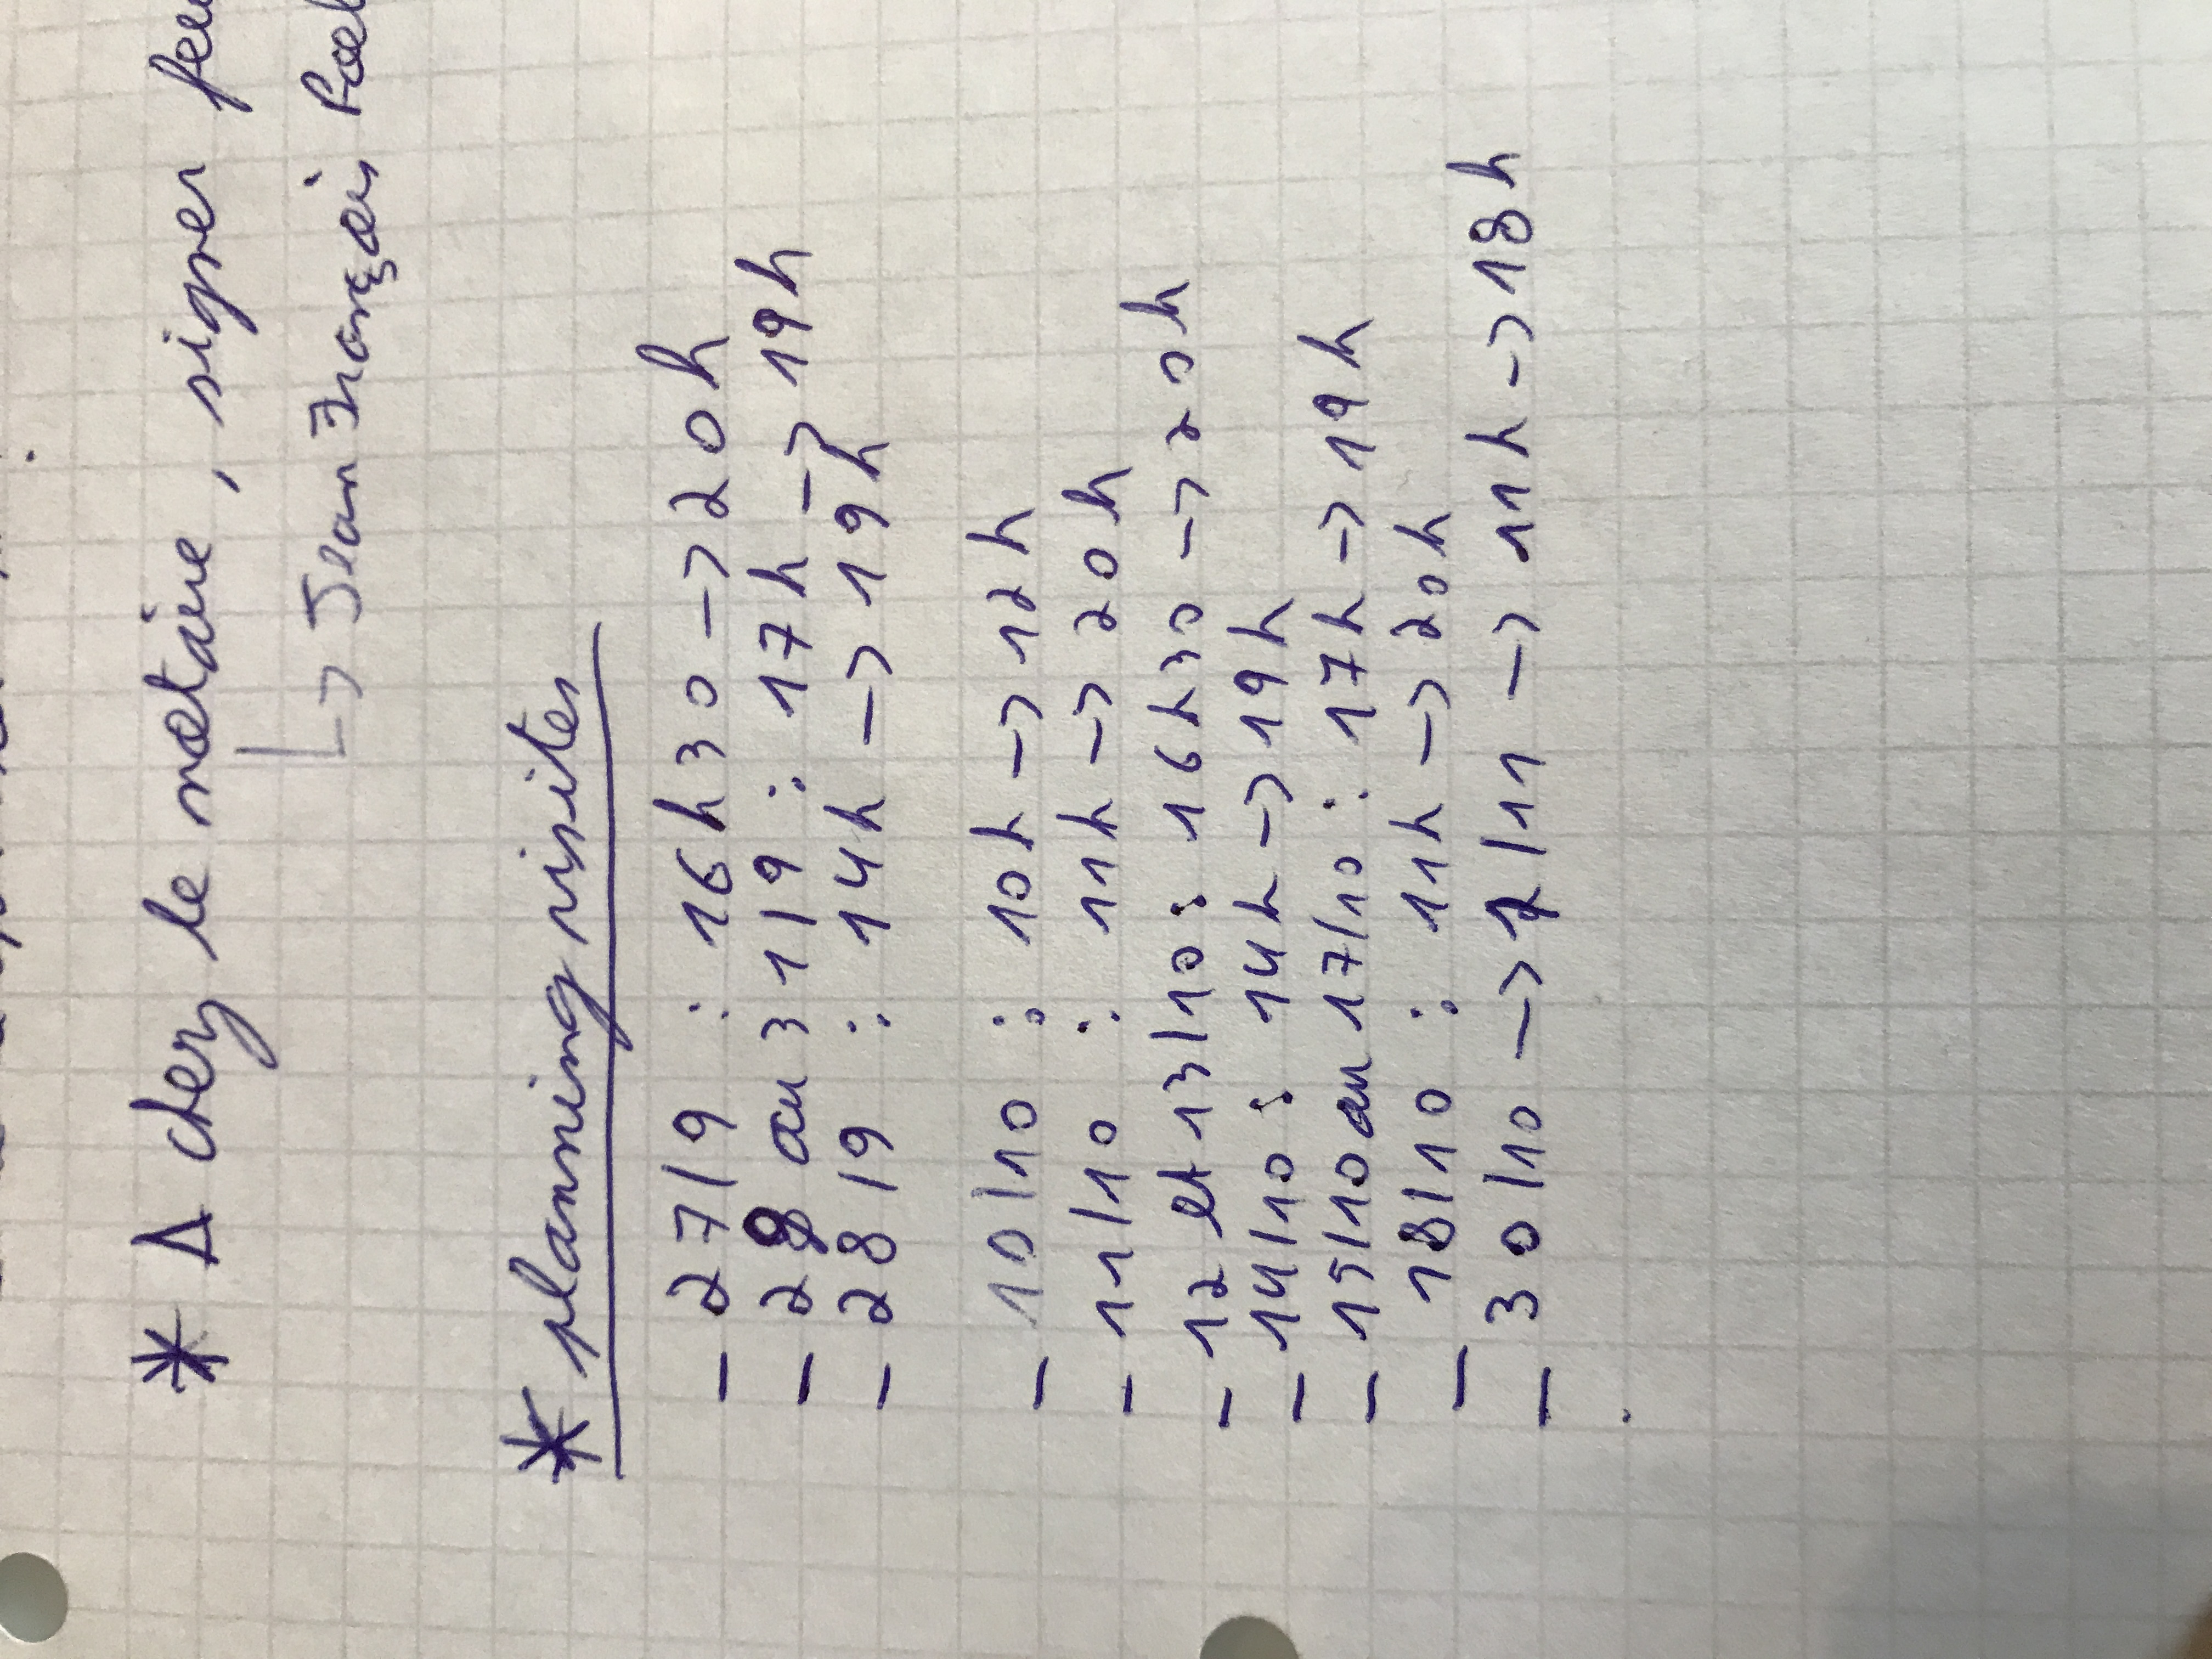 * A chez le notaire, signer
↳ Jean François
* planning visites
- 27/9 : 16h30 -> 20h
- 29 au 31/9 : 17h -> 19h
- 28/9 : 14h -> 19h
- 10/10 : 10h -> 12h
- 11/10 : 11h -> 20h
- 12 et 13/10 : 16h30 -> 20h
- 14/10 : 14h -> 19h
- 15/10 au 17/10 : 17h -> 19h
- 18/10 : 11h -> 20h
- 30/10 -> 1/11 -> 11h -> 18h